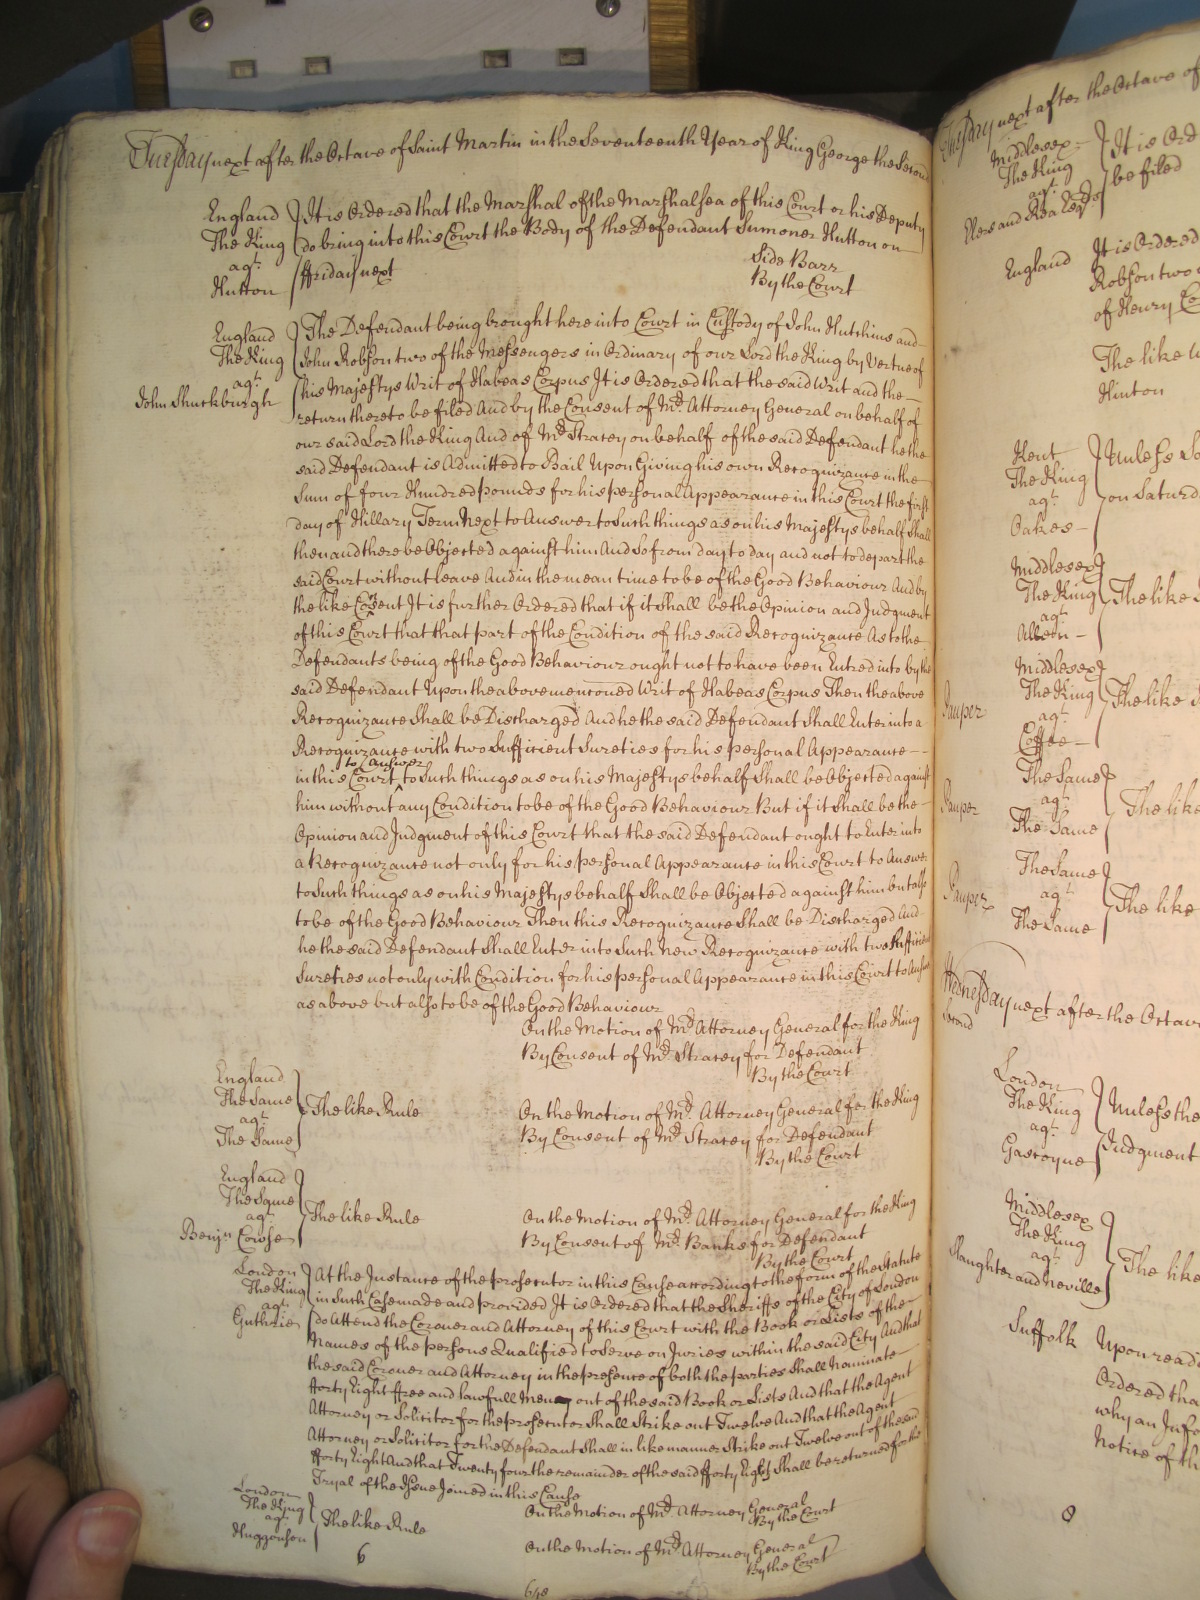 Tuesday next after the Octave of Saint Martin in the Seventeenth Year of King George the Second
England
The King
agt.
Hutton
It is Ordered that the Marshal of the Marshalsea of this Court or his Deputy
do bring into this Court the Body of the Defendant Sumoner Hutton on
ffriday next
Side Barr
By the Court
England
The King
agt.
John Shuckburgh
The Defendant being brought here into Court in Custody of John Hutchins and
John Robson two of the Messengers in Ordinary of our Lord the King by Vertue of
his Majestys Writ of Habeas Corpus It is Ordered that the said Writ and the
return thereto be filed And by the Consent of Mr. Attorney General on behalf of
our said Lord the King And of Mr. Stracey on behalf of the said Defendant he the
said Defendant is Admitted to Bail Upon Giving his own Recognizance in the
Sum of four Hundred pounds for his personal Appearance in this Court the first
day of Hillary Term Next to Answer to Such things as on his Majestys behalf Shall
then and there be Objected against him And So from day to day and not to depart the
said Court without leave And in the mean time to be of the Good Behaviour And by
the like Consent It is further Ordered that if it Shall be the Opinion and Judgment
of this Court that that part of the Condition of the said Recognizance As to the
Defendants being of the Good Behaviour ought not to have been Entred into by the
said Defendant Upon the abovementioned Writ of Habeas Corpus Then the above
Recognizance Shall be Discharged And he the said Defendant Shall Enter into a
Recognizance with two Sufficient Sureties for his personal Appearance
in this Court to Answer to Such things as on his Majestys behalf Shall be Objected against
him without any Condition to be of the Good Behaviour But if it Shall be the
Opinion and Judgment of this Court that the said Defendant ought to Enter into
a Recognizance not only for his personal Appearance in this Court to Answer
to Such things as on his Majestys behalf Shall be Objected against him but also
to be of the Good Behaviour Then this Recognizance Shall be Discharged And
he the said Defendant Shall Enter into Such New Recognizance with two Sufficient
Sureties not only with Condition for his personal Appearance in this Court to Answer
as above but also to be of the Good Behaviour
On the Motion of Mr. Attorney General for the King
By Consent of Mr. Stracey for Defendant
By the Court
England
The Same
agt.
The Same
The like Rule
On the Motion of Mr. Attorney General for the King
By Consent of Mr. Stracey for Defendant
By the Court
England
The Same
agt.
Benjn. Cowse
The like Rule
On the Motion of Mr. Attorney General for the King
By Consent of Mr. Banks for Defendant
By the Court
London
The King
agt.
Guthrie
At the Instance of the prosecutor in this Cause according to the form of the Statute
in Such Case made and provided It is Ordered that the Sheriffs of the City of London
do Attend the Coroner and Attorney of this Court with the Book or Lists of the
Names of the persons Qualified to Serve on Juries within the said City And that
the said Coroner and Attorney in the presence of both the parties Shall Nominate
fforty Eight ffree and lawfull Men out of the said Book or Lists And that the Agent
Attorney or Solicitor for the prosecutor Shall Strike out Twelve And that the Agent
Attorney or Solicitor for the Defendant Shall in like manner Strike out Twelve out of the said
fforty Eight And that Twenty four the remainder of the said fforty Eight Shall be returned for the
Tryal of the Issue Joined in this Cause
On the Motion of Mr. Attorney General
By the Court
London
The King
agt.
Huggonson
The like Rule
On the Motion of Mr. Attorney General
By the Court
6
648
Tuesday next after the Octave of
Middlesex
The King
agt.
It is Ord
be filed
England
It is Ordered
Robson two
of Henry Co
The like
Hinton
Kent
The King
agt.
Oakes
Unless
on Saturd
Middlesex
The King
agt.
The like
Pauper
Middlesex
The King
agt.
Coffee
The like
Pauper
The Same
agt.
The Same
The like
Pauper
The Same
agt.
The Same
The like
Wednesday next after the Octave
Second
London
The King
agt.
Gascoyne
Unless the
Judgment
Middlesex
The King
agt.
Slaughter and Neville
The like
Suffolk
Upon read
Ordered tha
why an Info
Notice of th
8